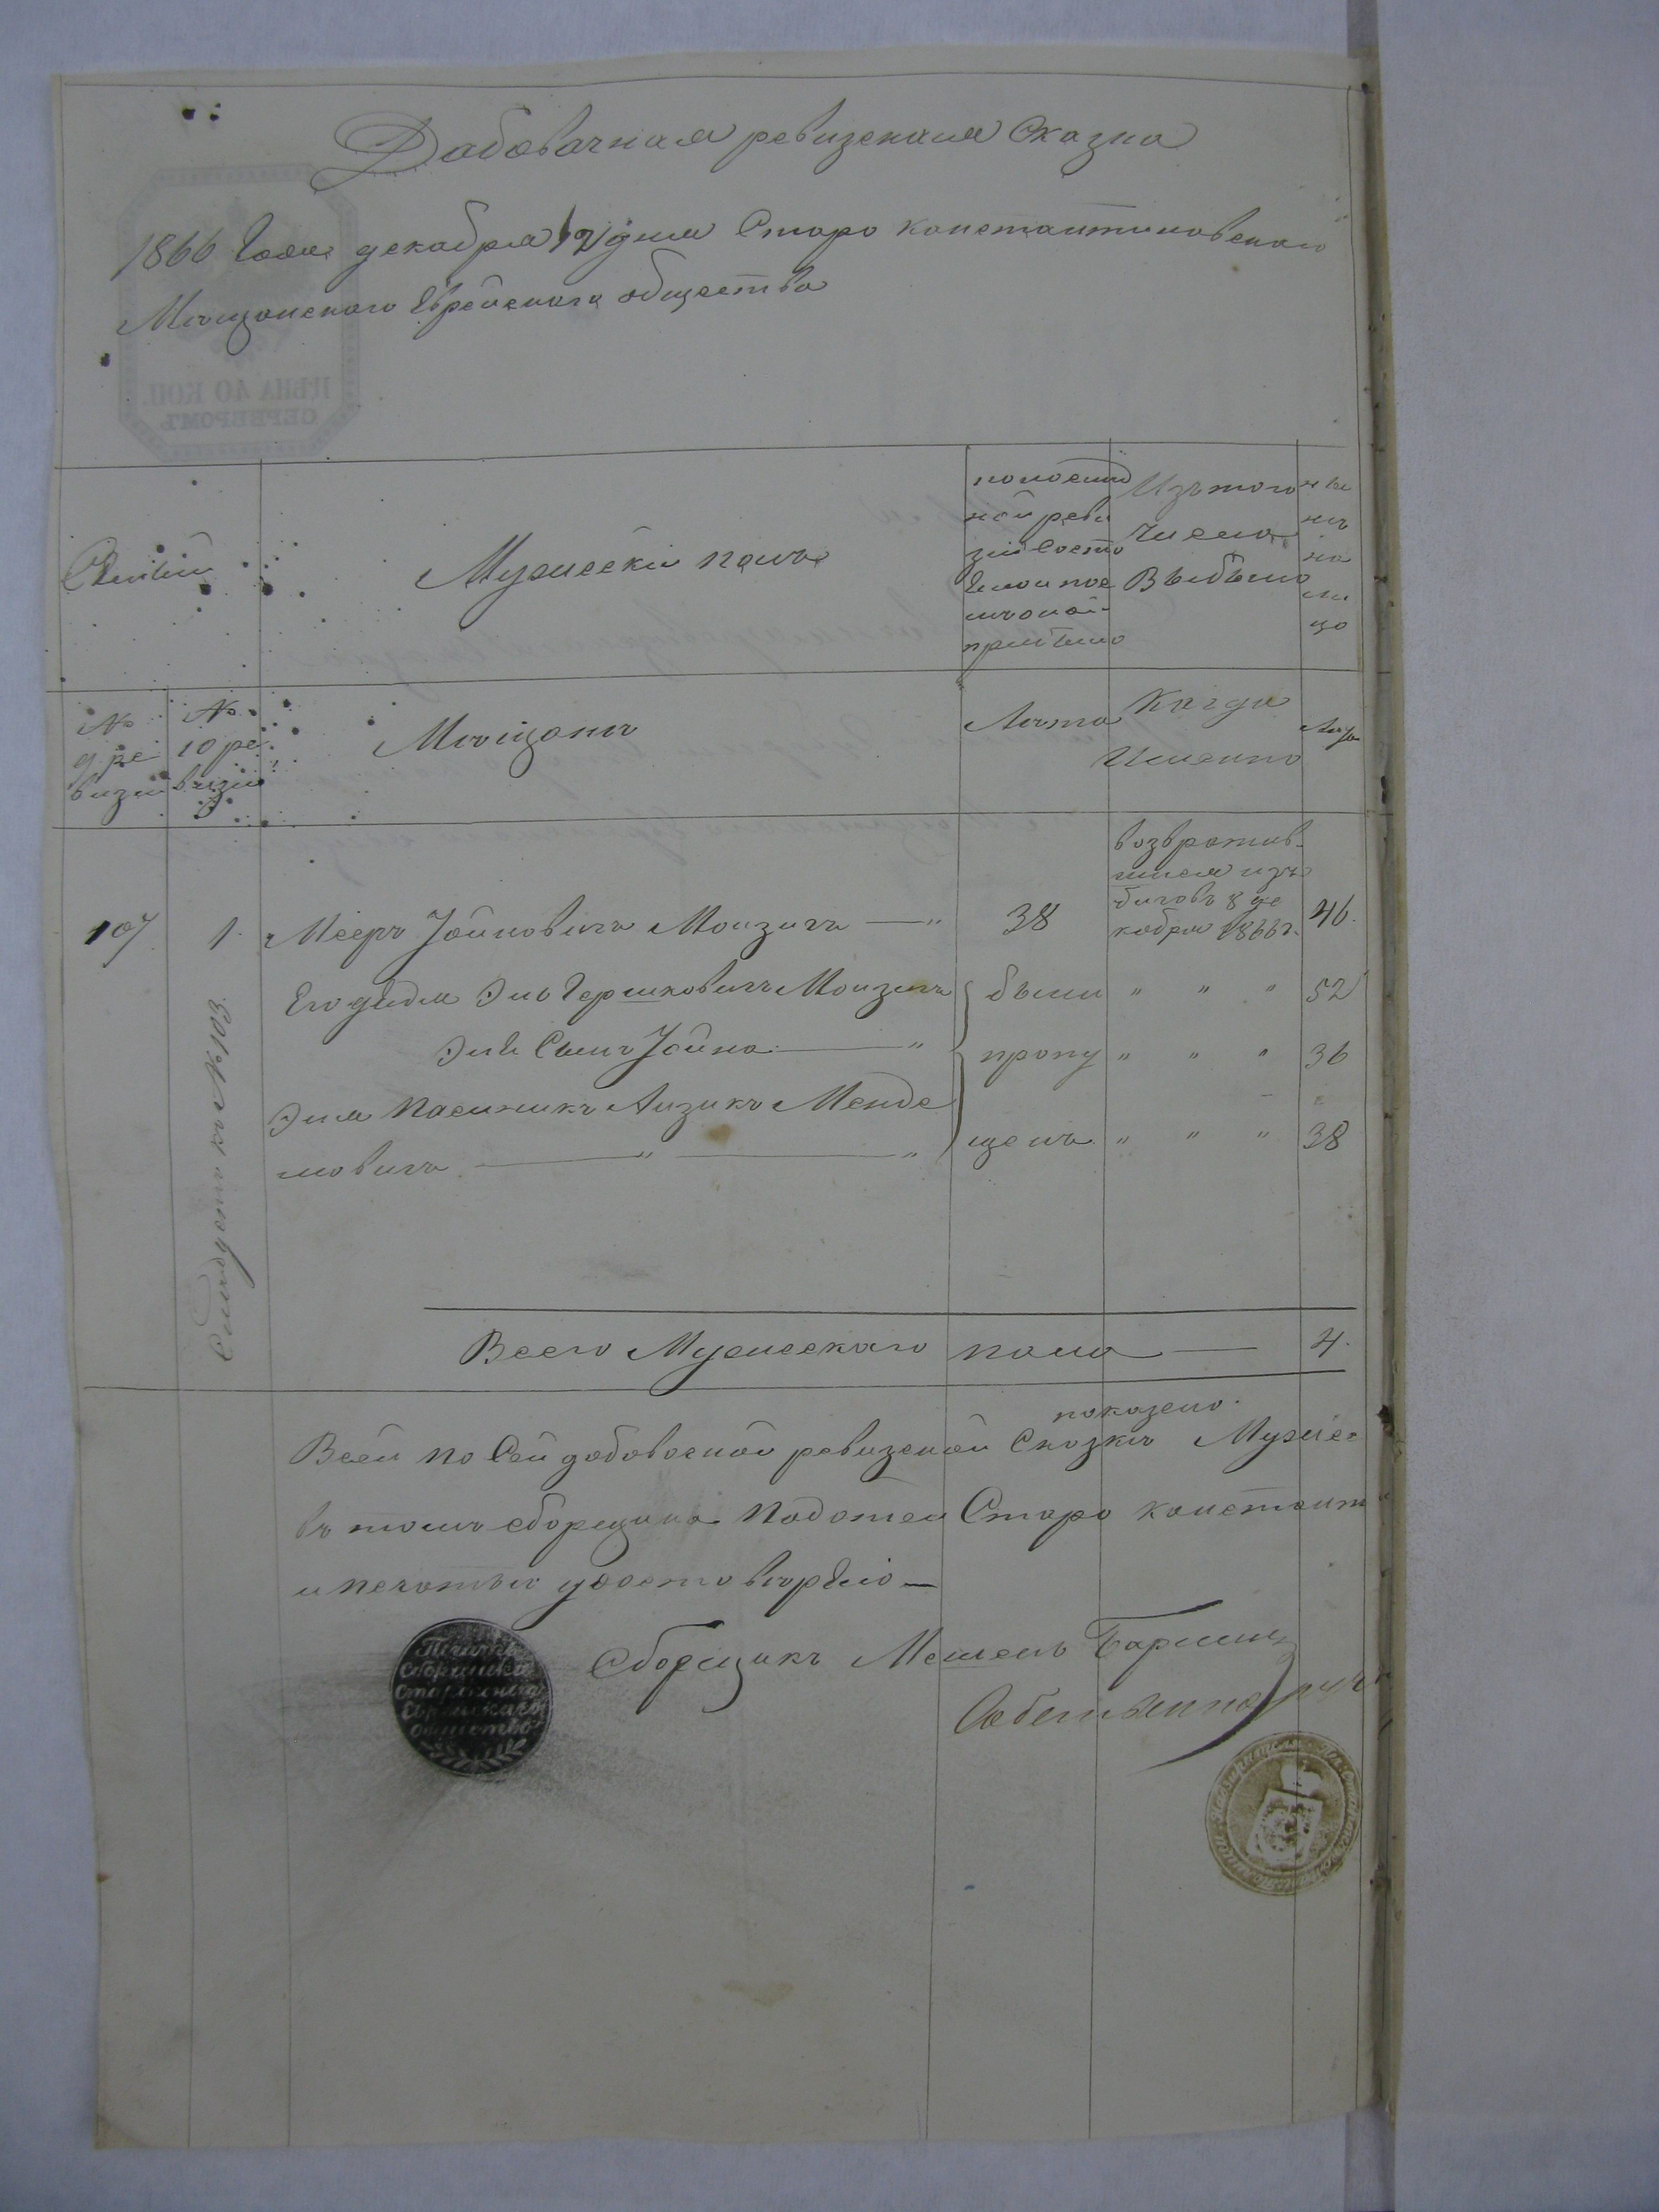 Добавочная ревизская Сказка
1866 Года декабря 12 дня Старо константиновского
Мѣщанского Еврейского общества
ЦѢНА 40 КОП.
СЕРЕБРОМЪ
Семьи
Мужескій полъ
по послѣд
ней реви
зіи состо
яло и пос
лѣ оной
прибыло
Изъ того
числа
Выбыло
ны
нѣ
на
ли
цо
№
9 ре
визіи
№
10 ре
визіи
Мѣщанъ
Лѣта
Когда
Именно
Лѣта
107
1
Слѣдуетъ къ № 103.
Мееръ Іойновичъ Моизигъ — "
38
возвратив
шися изъ
бѣговъ 8 де
кабря 1866 г.
46.
Его дядя Эль Гершковичъ Моизигъ
были
" " "
52
Эля Сынъ Іойна — "
пропу
" " "
36
Эля Племникъ Аизикъ Менде
левичъ — " — "
щены
" " "
38
Всего Мужескаго пола — 4.
показано.
Всей по Сей добавочной ревизской Сказкѣ Мужес
въ томъ сборщика Податей Старо констант
и печатью удостовѣряю —
Сборщикъ
Печать
Сборщика
Еврейскаго
Общества